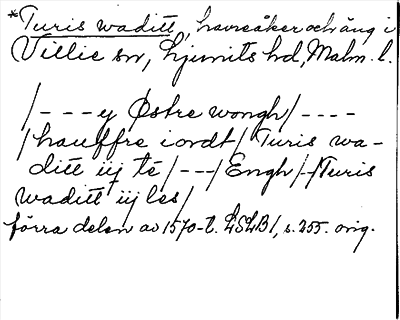 *Turis waditt, havreåker och äng i
Villie sn, Ljunits hd, Malm. l.
/---y Østre wongh/----
/hauffre iordt/ Turis wa-
ditt iij té/---/Engh/--/Turis
waditt iij les/
förra delen av 1570-t. LSLB1, s. 255. orig.